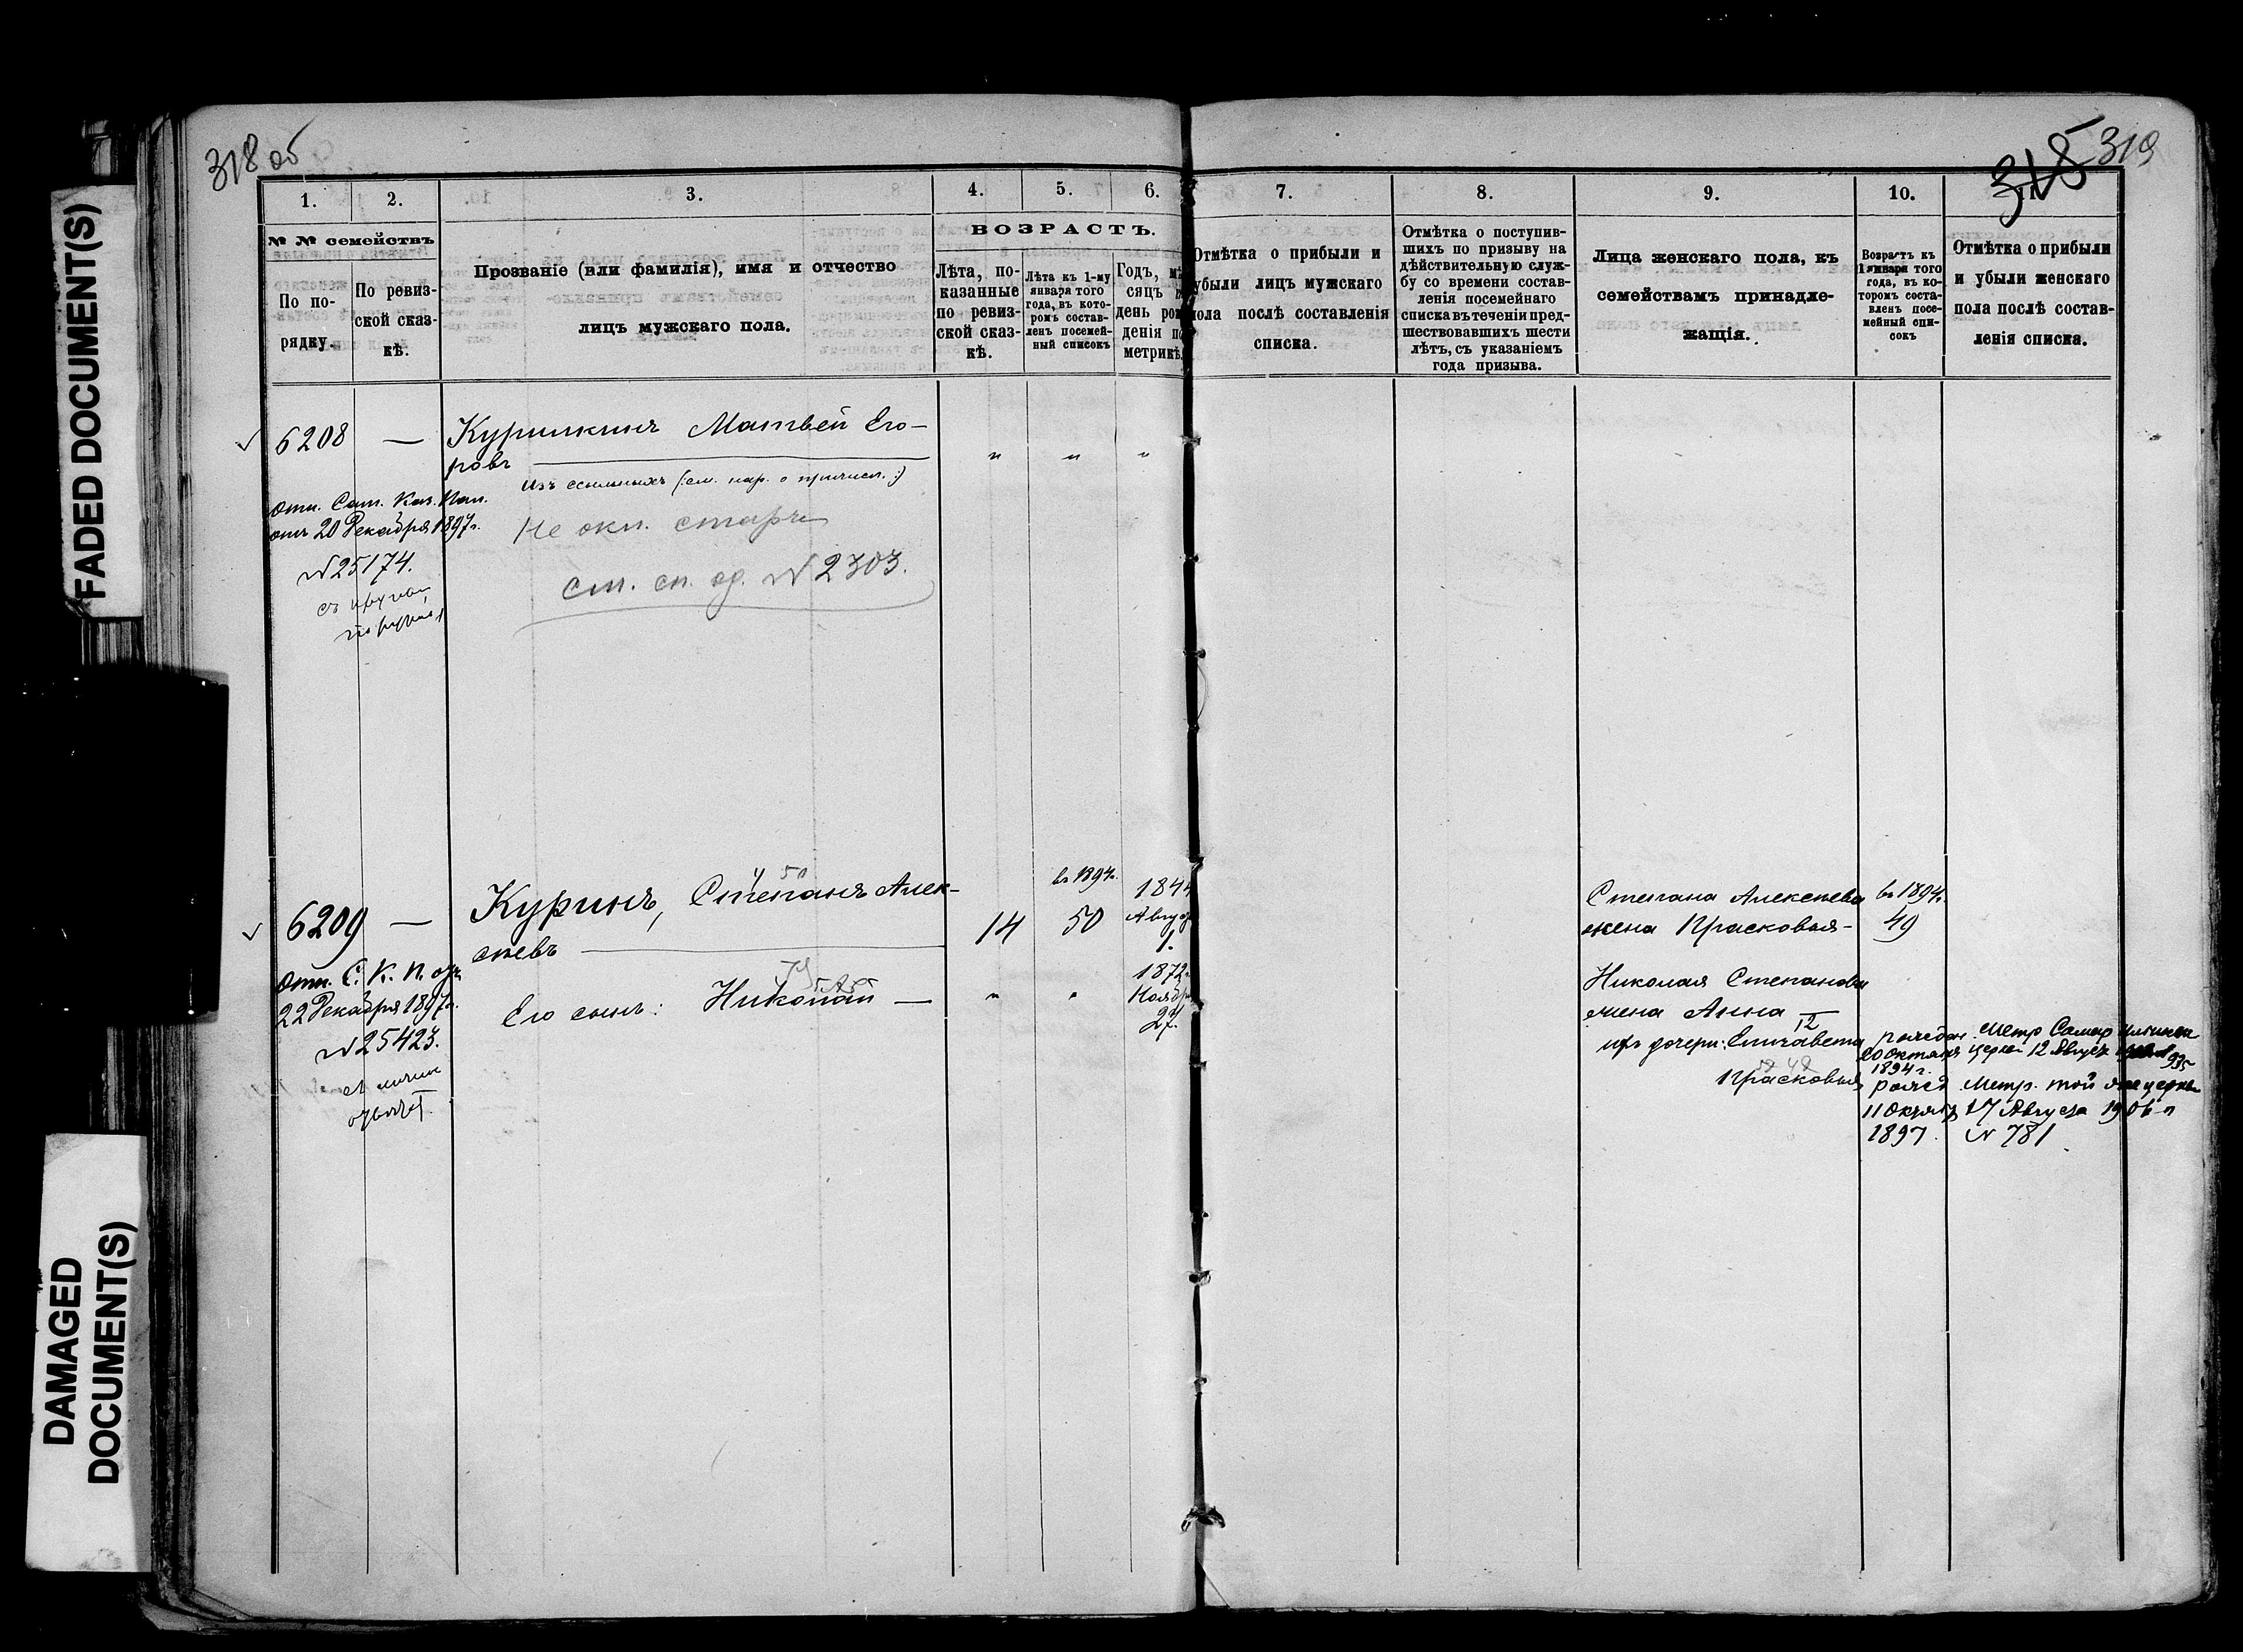 FADED DOCUMENT(S)
DAMAGED
DOCUMENT(S)
318 об
318 319
1.
2.
3.
4.
5.
6.
№ № семействъ
По по-
рядку.
По ревиз-
ской сказ-
кѣ.
Прозваніе (или фамилія), имя и отчество
лицъ мужскаго пола.
ВОЗРАСТЪ.
Лѣта, по-
казанные
по ревиз-
ской сказ-
кѣ.
Лѣта къ 1-му
января того
года, въ кото-
ромъ состав-
ленъ посемей-
ный списокъ
Годъ, мѣ
сяцъ и
день рож
денія по
метрикѣ.
7.
8.
9.
10.
Отмѣтка о прибыли и
убыли лицъ мужскаго
пола послѣ составленія
списка.
Отмѣтка о поступив-
шихъ по призыву на
дѣйствительную служ-
бу со времени состав-
ленія посемейнаго
списка въ теченіи пред-
шествовавшихъ шести
лѣтъ, съ указаніемъ
года призыва.
Лица женскаго пола, къ
семействамъ принадле-
жащія.
Возрастъ къ
1 января того
года, въ ко-
торомъ соста-
вленъ посе-
мейный спи-
сокъ
Отмѣтка о прибыли
и убыли женскаго
пола послѣ состав-
ленія списка.
6208 —
Отн. Сам. Каз. Пал.
отъ 20 Декабря 1897 г.
№ 25174.
съ
Курилкинъ Матвей Его-
ровъ
Изъ ссыльныхъ (: см. нар. о причисл. :)
Не окл. старш
См. сп. од. № 2303.
" " "
6209 —
Отн. С. К. П. отъ
22 Декабря 1897 г.
№ 25423.
Куринъ, Степанъ Алек-
сѣевъ
14
въ 1894 г.
50
1844
Август
1.
Его сынъ: Николай —
" "
1872 г.
Ноября
27.
Степана Алексѣева
жена Прасковья -
въ 1894 г.
49
Николая Степанова
жена Анна —
ихъ дочери: Елизавета
рожден.
20 Октября
1894 г.
Метр. Самар. Ильинск
церкви 12 Август
935
Прасковья
рожд
11 Октября
1897.
Метр. той же церкви
17 Августа 1906 г
№ 781